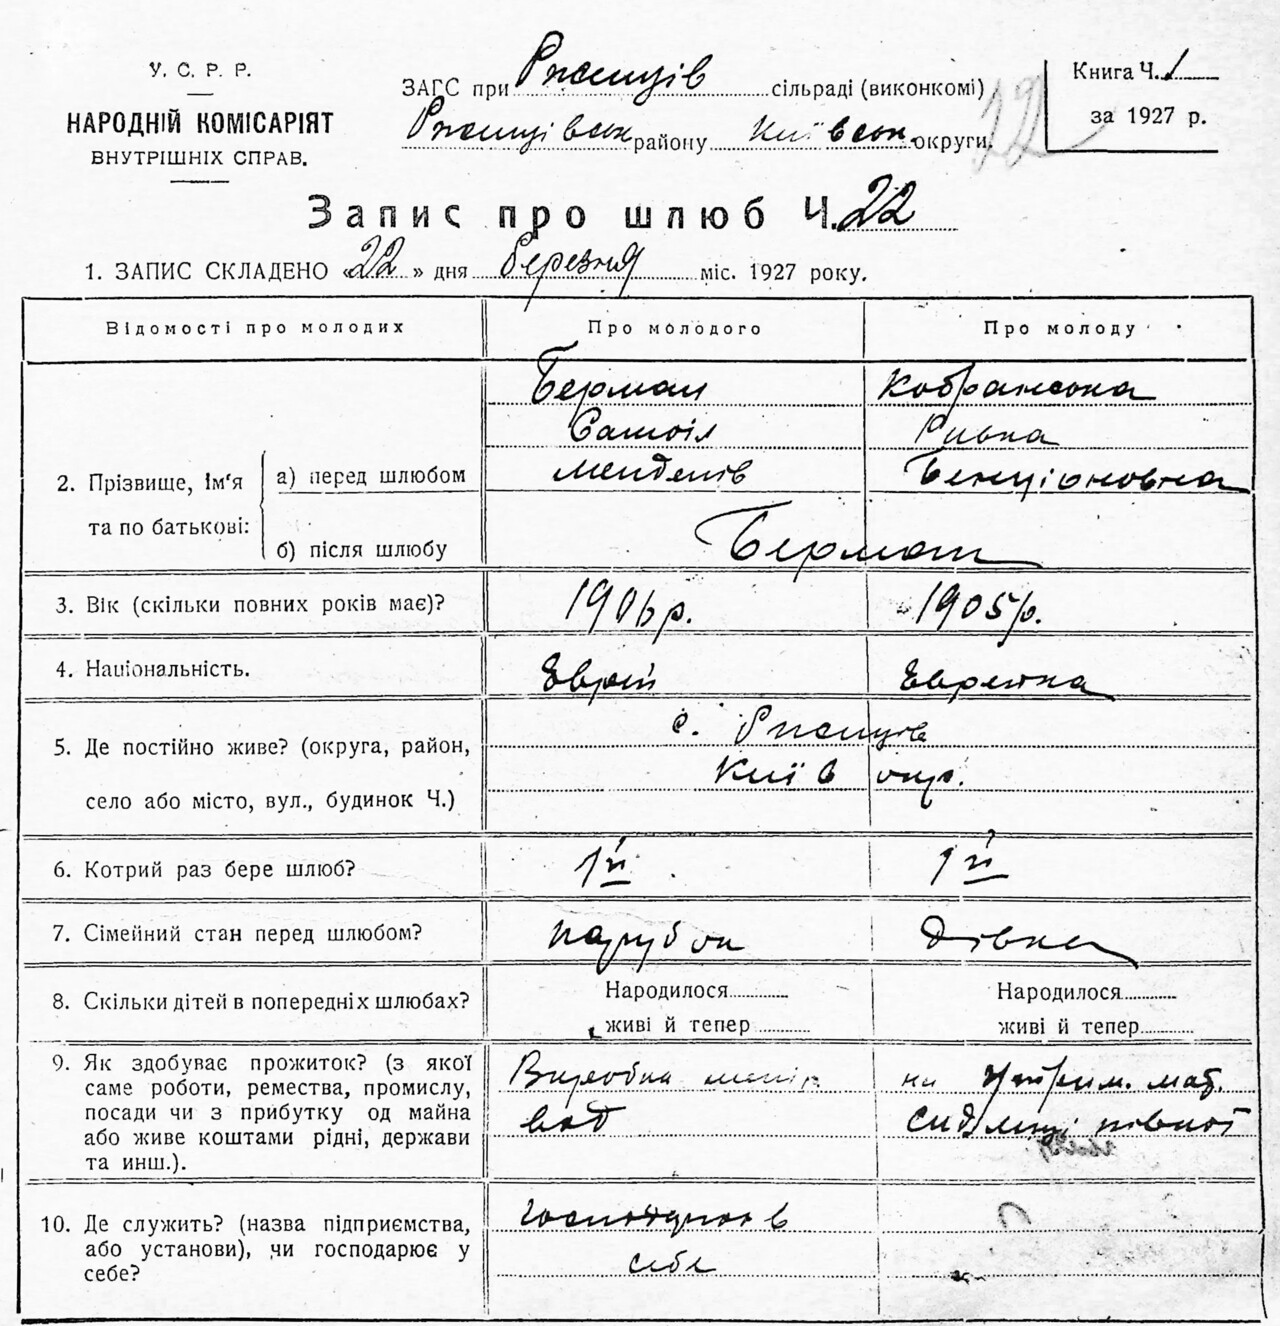 У. С. Р. Р.
НАРОДНІЙ КОМІСАРІЯТ
ВНУТРІШНІХ СПРАВ.
ЗАГС при Ржищів сільраді (виконкомі)
Ржищівськ району Київськ. округи.
22
Книга Ч. 1
за 1927 р.
Запис про шлюб Ч. 22
1. ЗАПИС СКЛАДЕНО «22» дня березня міс. 1927 року.
Відомості про молодих Про молодого Про молоду
2. Прізвище, ім'я та по батькові:
а) перед шлюбом
Берман Кобранська
Самоіл Ривка
Менделів Бенціоновна
б) після шлюбу Берман
3. Вік (скільки повних років має)? 1906 р. 1905 р.
4. Національність. Єврей Єврейка
5. Де постійно живе? (округа, район,
село або місто, вул., будинок Ч.)
с. Ржищів
Київ окр.
6. Котрий раз бере шлюб? 1й 1й
7. Сімейний стан перед шлюбом? парубок дівка
8. Скільки дітей в попередніх шлюбах? Народилося Народилося
живі й тепер живі й тепер
9. Як здобуває прожиток? (з якої
саме роботи, ремества, промислу,
посади чи з прибутку од майна
або живе коштами рідні, держави
та инш.).
Виробка
вод
на утрим. мат.
10. Де служить? (назва підприємства,
або установи), чи господарює у
себе?
в
себе